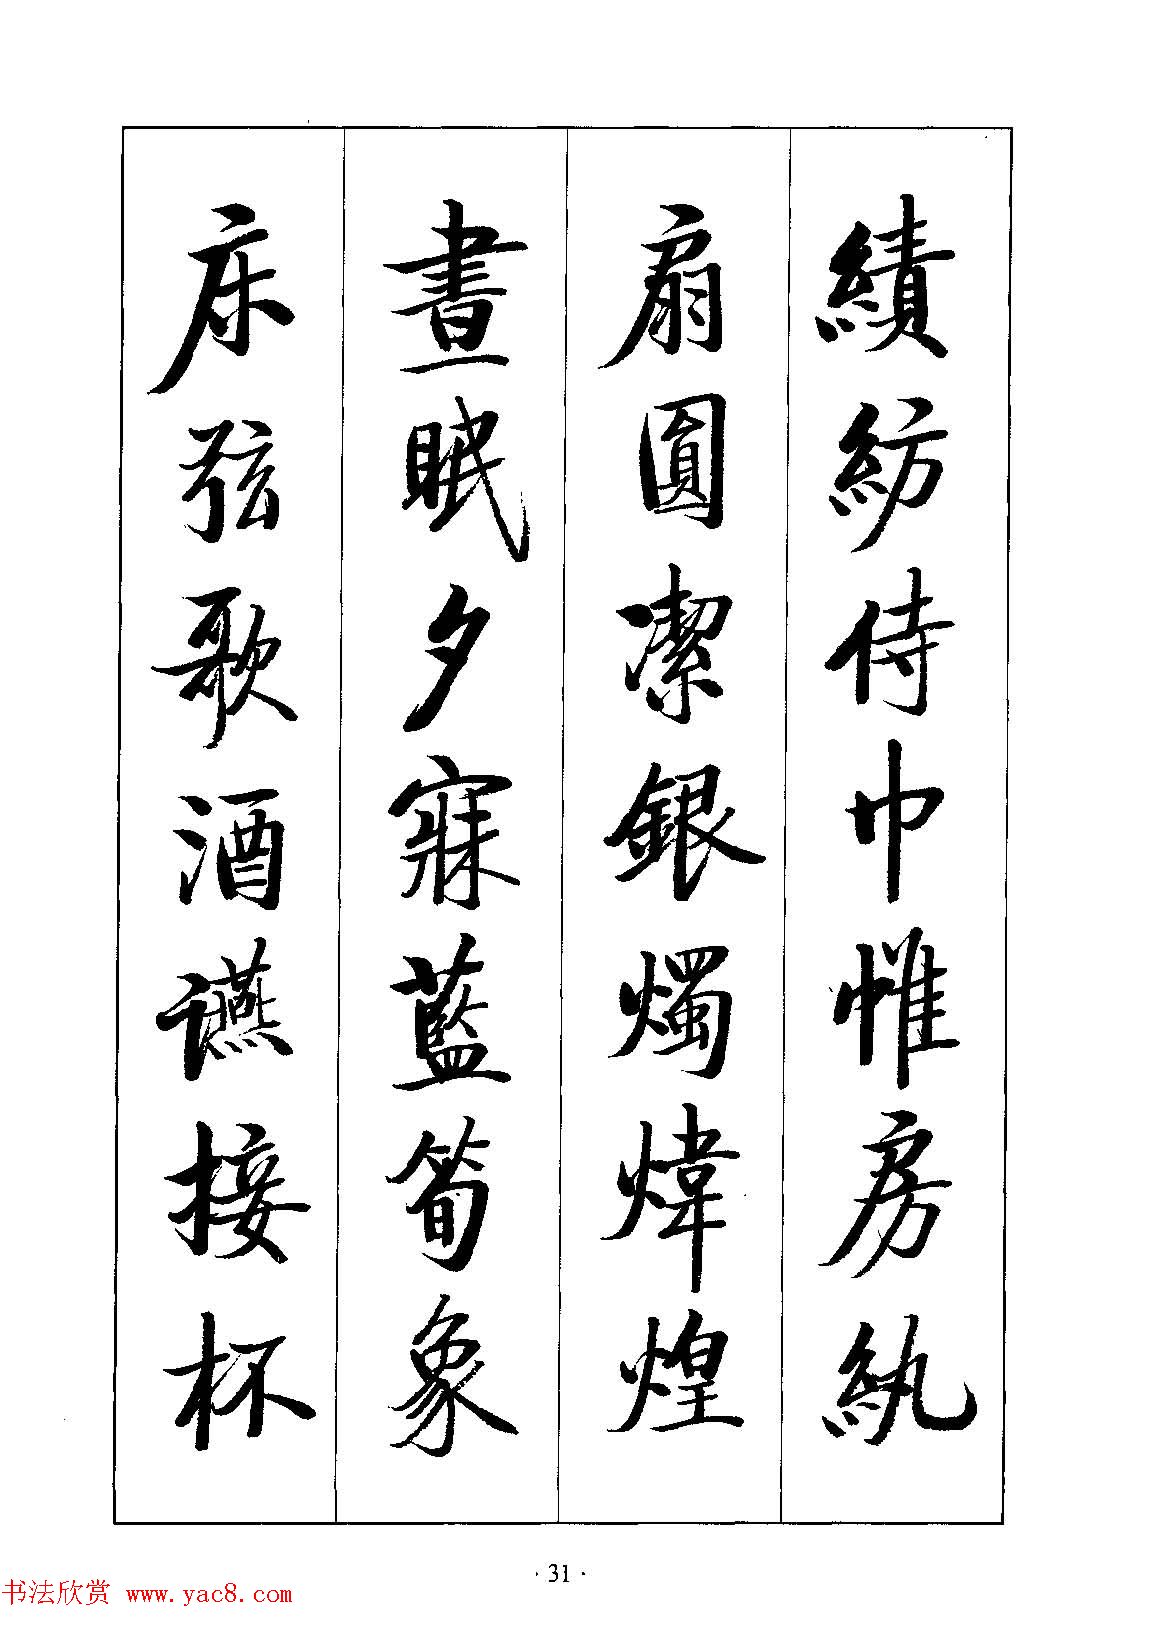 績紡侍巾帷房紈
扇圓潔銀燭煒煌
晝眠夕寐藍筍象
床弦歌酒讌接杯
· 31 ·
书法欣赏 www.yac8.com